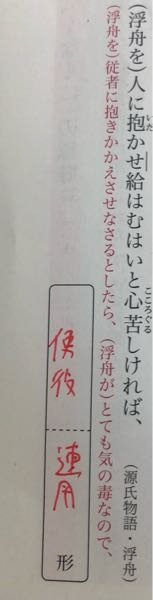 (浮舟を)人に抱かせ給はむはいと心苦しければ、(源氏物語・浮舟)
いだ
こころぐる
(浮舟を)従者に抱きかかえさせなさるとしたら、(浮舟が)とても気の毒なので、
使役 連用 形